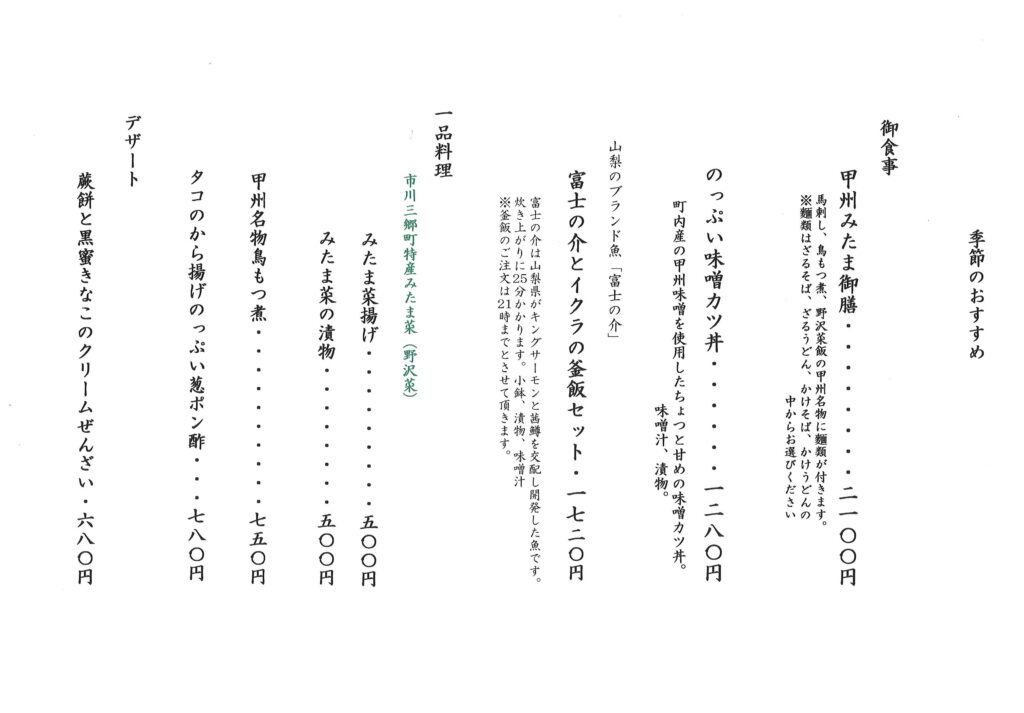 季節のおすすめ
御食事
甲州みたま御膳・・・・・・・・二一〇〇円
馬刺し、鳥もつ煮、野沢菜飯の甲州名物に麺類が付きます。
※麺類はざるそば、ざるうどん、かけそば、かけうどんの
中からお選びください
のっぷい味噌カツ丼・・・・・・一二八〇円
町内産の甲州味噌を使用したちょっと甘めの味噌カツ丼。
味噌汁、漬物。
山梨のブランド魚「富士の介」
富士の介とイクラの釜飯セット・一七二〇円
富士の介は山梨県がキングサーモンと茜鱒を交配し開発した魚です。
炊き上がりに25分かかります。小鉢、漬物、味噌汁
※釜飯のご注文は21時までとさせて頂きます。
一品料理
市川三郷町特産みたま菜（野沢菜）
みたま菜揚げ・・・・・・・・五〇〇円
みたま菜の漬物・・・・・・・五〇〇円
甲州名物鳥もつ煮・・・・・・・・・・七五〇円
タコのから揚げのっぷい葱ポン酢・・・七八〇円
デザート
蕨餅と黒蜜きなこのクリームぜんざい・六八〇円